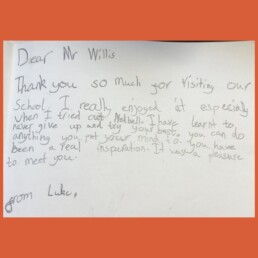 Dear Mr Willis
Thank you so much for visiting our
School. I really enjoyed it especially
when I tried out Netball. I have learnt to
never give up and try your best, you can do
anything you put your mind to. you have
been a real inspiration. It was a pleasure
to meet you.
from Luke,